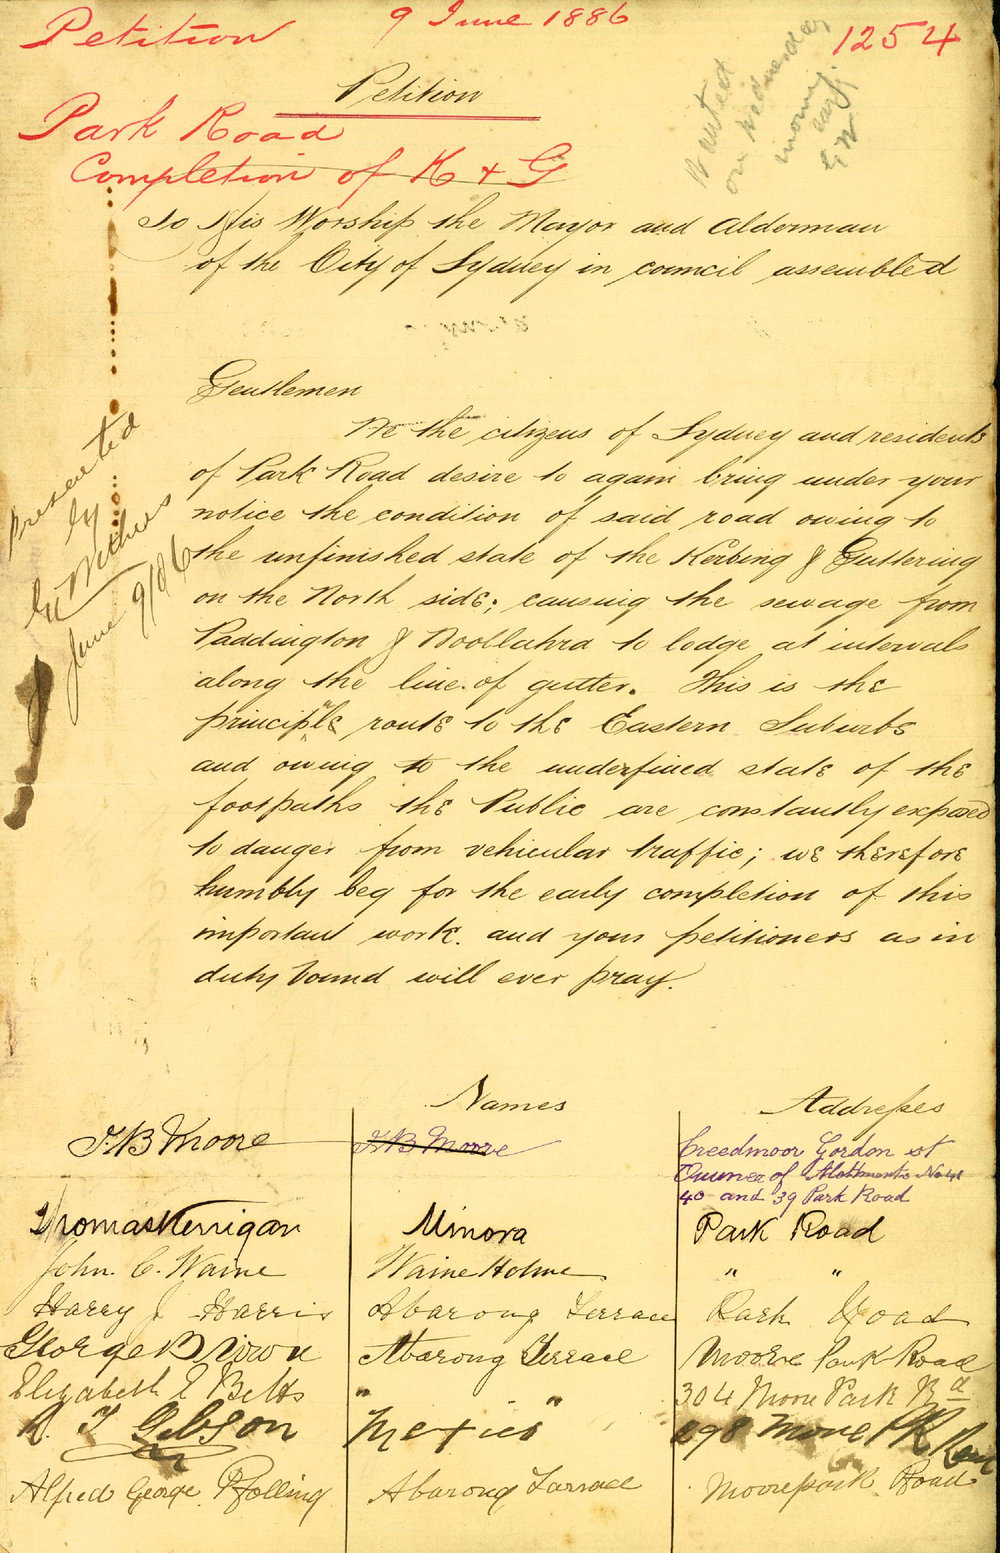 Petition
9 June 1886
1254
Petition
Park Road
Completion of K & G
Wanted
on Wednesday
morning
early
To His Worship the Mayor and Alderman
of the City of Sydney in council assembled
Gentlemen
We the citizens of Sydney and residents
of Park Road desire to again bring under your
notice the condition of said road owing to
the unfinished state of the Kerbing & Guttering
on the North side; causing the sewage from
Paddington & Woollahra to lodge at intervals
along the line of gutter. This is the
principle route to the Eastern Suburbs
and owing to the undefined state of the
footpaths the Public are constantly exposed
to danger from vehicular traffic; we therefore
humbly beg for the early completion of this
important work. and your petitioners as in
duty bound will ever pray.
Presented
by
Withers
June 9/86
Names Addresses
J B Moore J B Moore Creedmoor Gordon st
Owner of Allotments No 41
40 and 39 Park Road
Thomas Kerrigan Minora Park Road
John. C. Waine Waine Holme " "
Harry J Harris Abarong Terrace Park Road
George Brown Abarong Terrace Moore Park Road
Elizabeth E Betts " " 304 Moore Park Rd
R. T Gibson Mexico 298 Moore P R
Alfred George Rolling Abarong Tarrace Moorepark Road